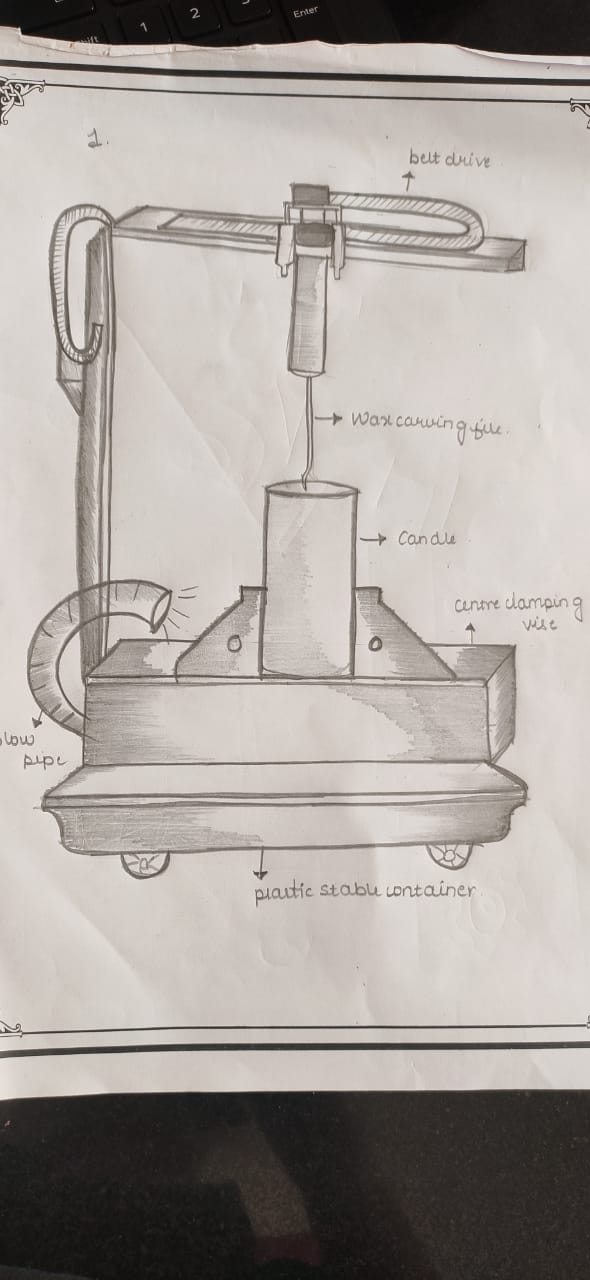 Enter
1
2
1.
belt drive
Wax carving file.
Candle
centre clamping
vise
low
pipe
plastic stable container.